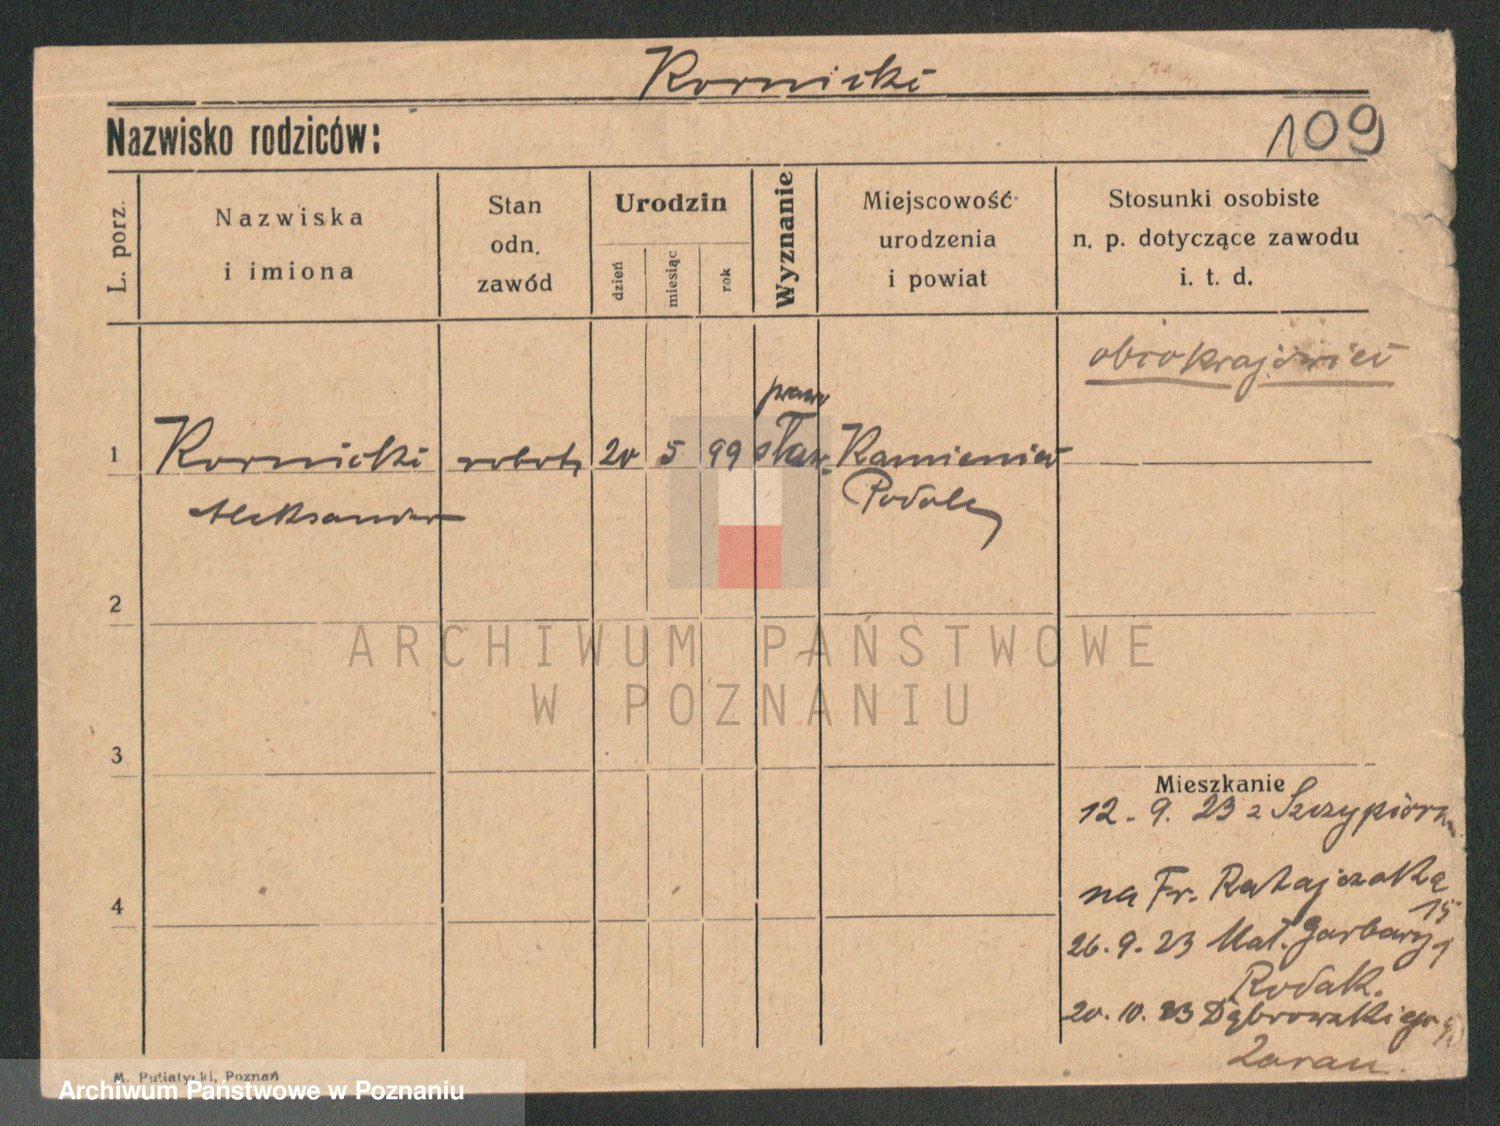 Kornicki
Nazwisko rodziców:
109
L. porz.
Nazwiska
i imiona
Stan
odn.
zawód
Urodzin
dzień
miesiąc
rok
Wyznanie
Miejscowość
urodzenia
i powiat
Stosunki osobiste
n. p. dotyczące zawodu
i. t. d.
obcokrajowiec
1
Kornicki
Aleksander
robotn
20
5
99
praw
sław.
Kamieniec
Podole
2
3
4
Mieszkanie
12. 9. 23 z Szczypiorna
na Fr. Ratajczaka
15
26. 9. 23 Mał. Garbary 1
Rodak.
20. 10. 23 Dąbrowskiego
M. Putiatycki, Poznań
ARCHIWUM PAŃSTWOWE
W POZNANIU
Archiwum Państwowe w Poznaniu